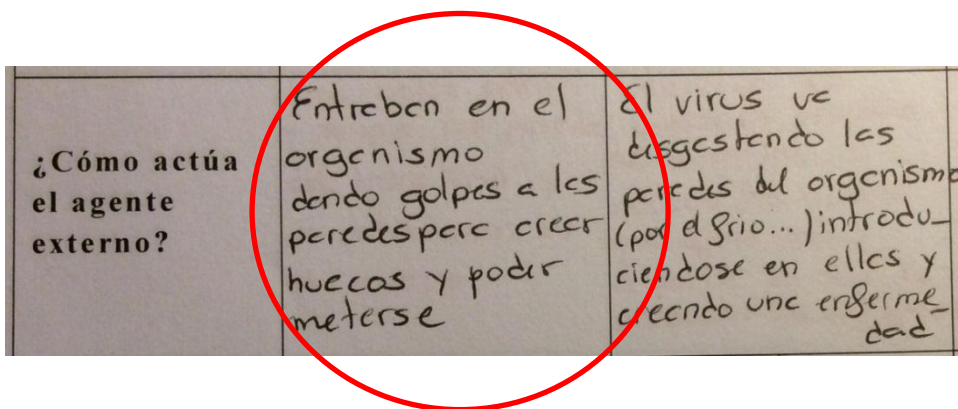 ¿Cómo actúa
el agente
externo?
Entraban en el
organismo
dando golpes a las
paredes para crear
huecos y poder
meterse
El virus va
desgastando las
paredes del organismo
(por el frio...) introdu-
ciendose en ellas y
creando una enferme-
dad